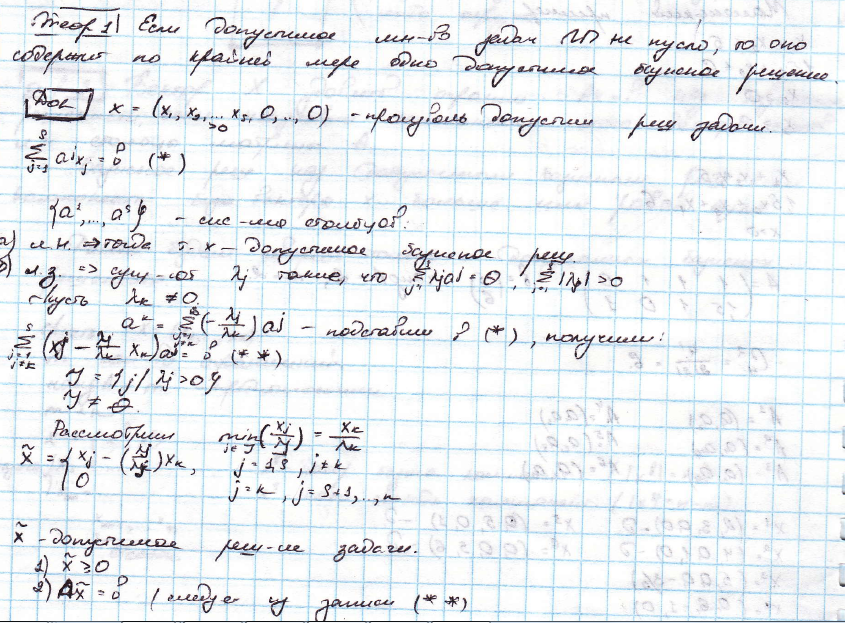 Теор 1| Если допустимое мн-во задач ЛП не пусто, то оно
содержит по крайней мере одно допустимое базисное решение.
Док x = (x₁, x₂, ... xₛ, 0, .., 0) - произвольн допустим реш задачи.
>0
∑ⱼ₌₁ˢ aʲxⱼ = b (*)
{a¹, ..., aˢ} - сис-ма столбцов:
а) л.н. => тогда т. x – допустимое базисное реш.
б) л.з. => сущ-ют λⱼ такие, что ∑ⱼ₌₁ˢ λⱼaʲ = Θ, ∑ⱼ₌₁ˢ |λⱼ| > 0
Пусть λₖ ≠ 0.
aᵏ = ∑ⱼ₌₁,ⱼ≠ₖˢ (-λⱼ/λₖ) aʲ – подставим в (*), получим:
∑ⱼ₌₁,ⱼ≠ₖˢ (xʲ – λⱼ/λₖ xₖ) aʲ = b (**)
Y = {j / λⱼ > 0}
Y ≠ Θ.
Рассмотрим min j∈Y (xⱼ/λⱼ) = xₖ/λₖ
x̃ = { xⱼ - (λⱼ/λₖ) xₖ, j = 1,s, j ≠ k
0 j = k, j = s+1, ..., n
x̃ - допустимое реш-ие задачи.
1) x̃ ≥ 0
2) Ax̃ = b (следует из записи (**)